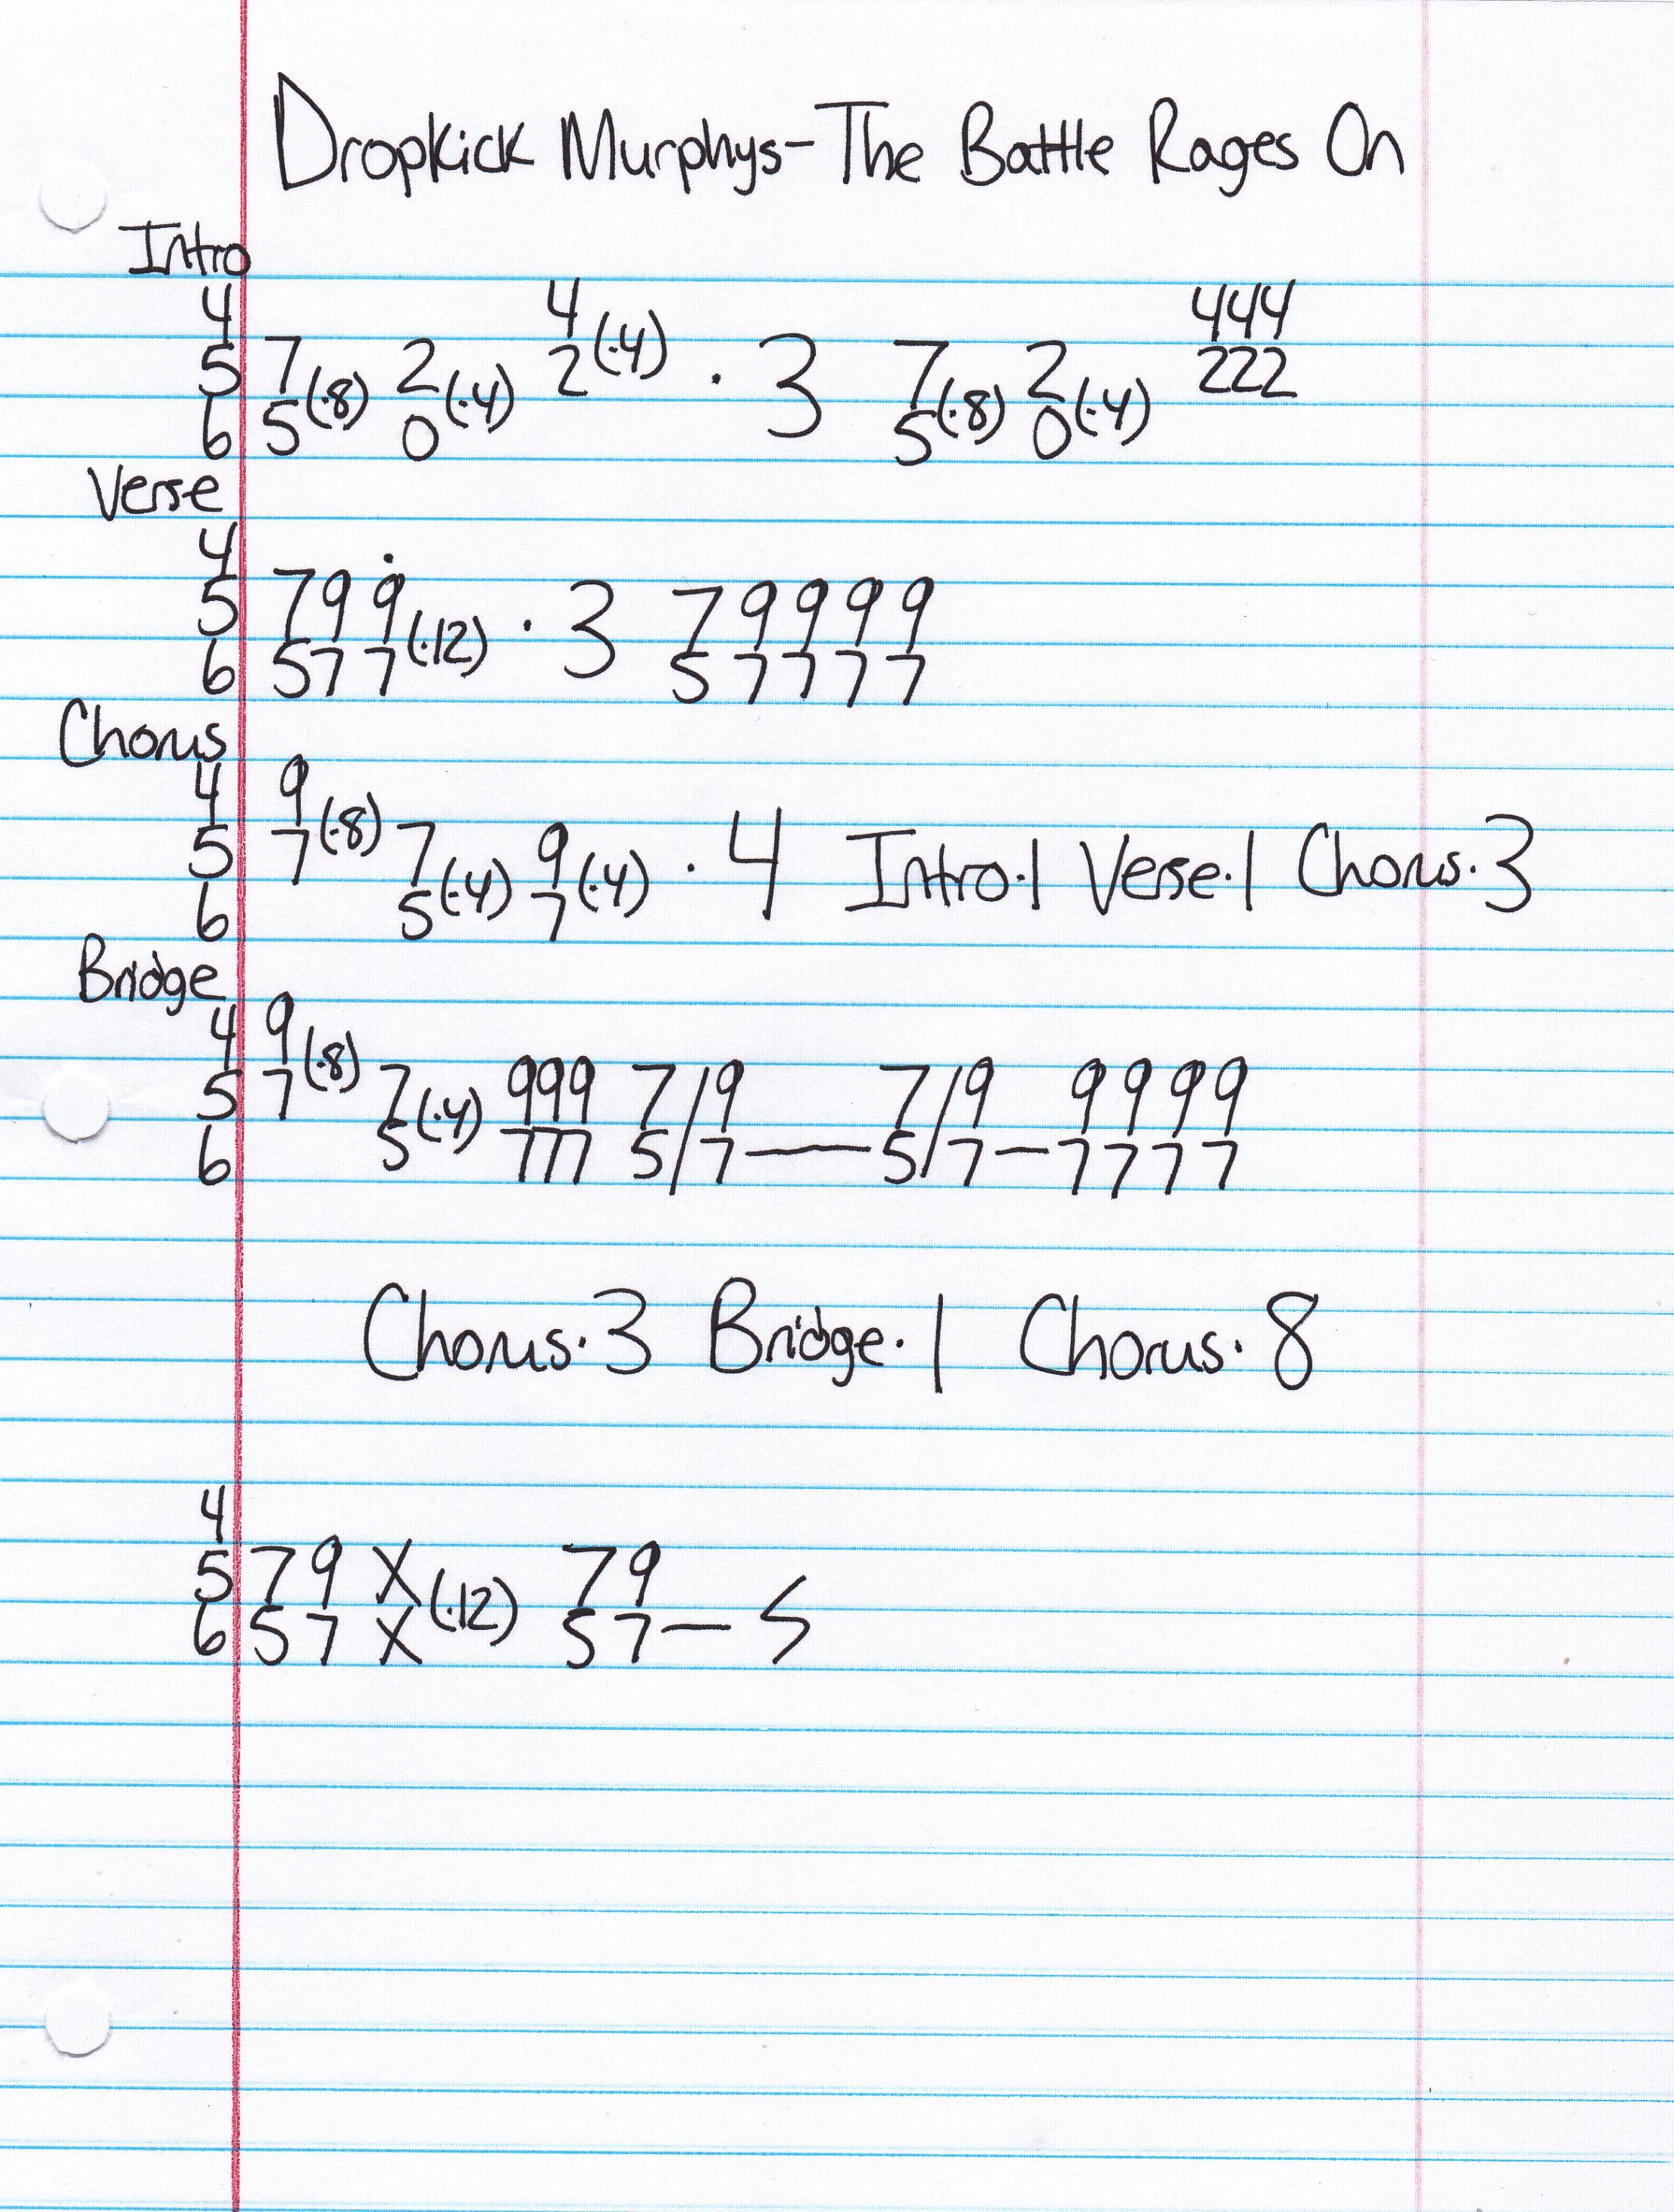 Dropkick Murphys-The Battle Rages On
Intro
4 4 444
5 7(·8) 2(·4) 2(·4) · 3 7(·8) 2(·4) 222
6 5 0 5 0
Verse
4
5 799̇(·12) · 3 79999
6 577 57777
Chorus
4 9
5 7(·8) 7(·4) 9(·4) · 4 Intro·1 Verse·1 Chorus·3
6 5 7
Bridge
4 9
5 7(·8) 7(·4) 999 7/9 7/9 9999
6 5 777 5/7—5/7—7777
Chorus·3 Bridge·1 Chorus·8
4
5 79X(·12) 79
6 57X 57—S